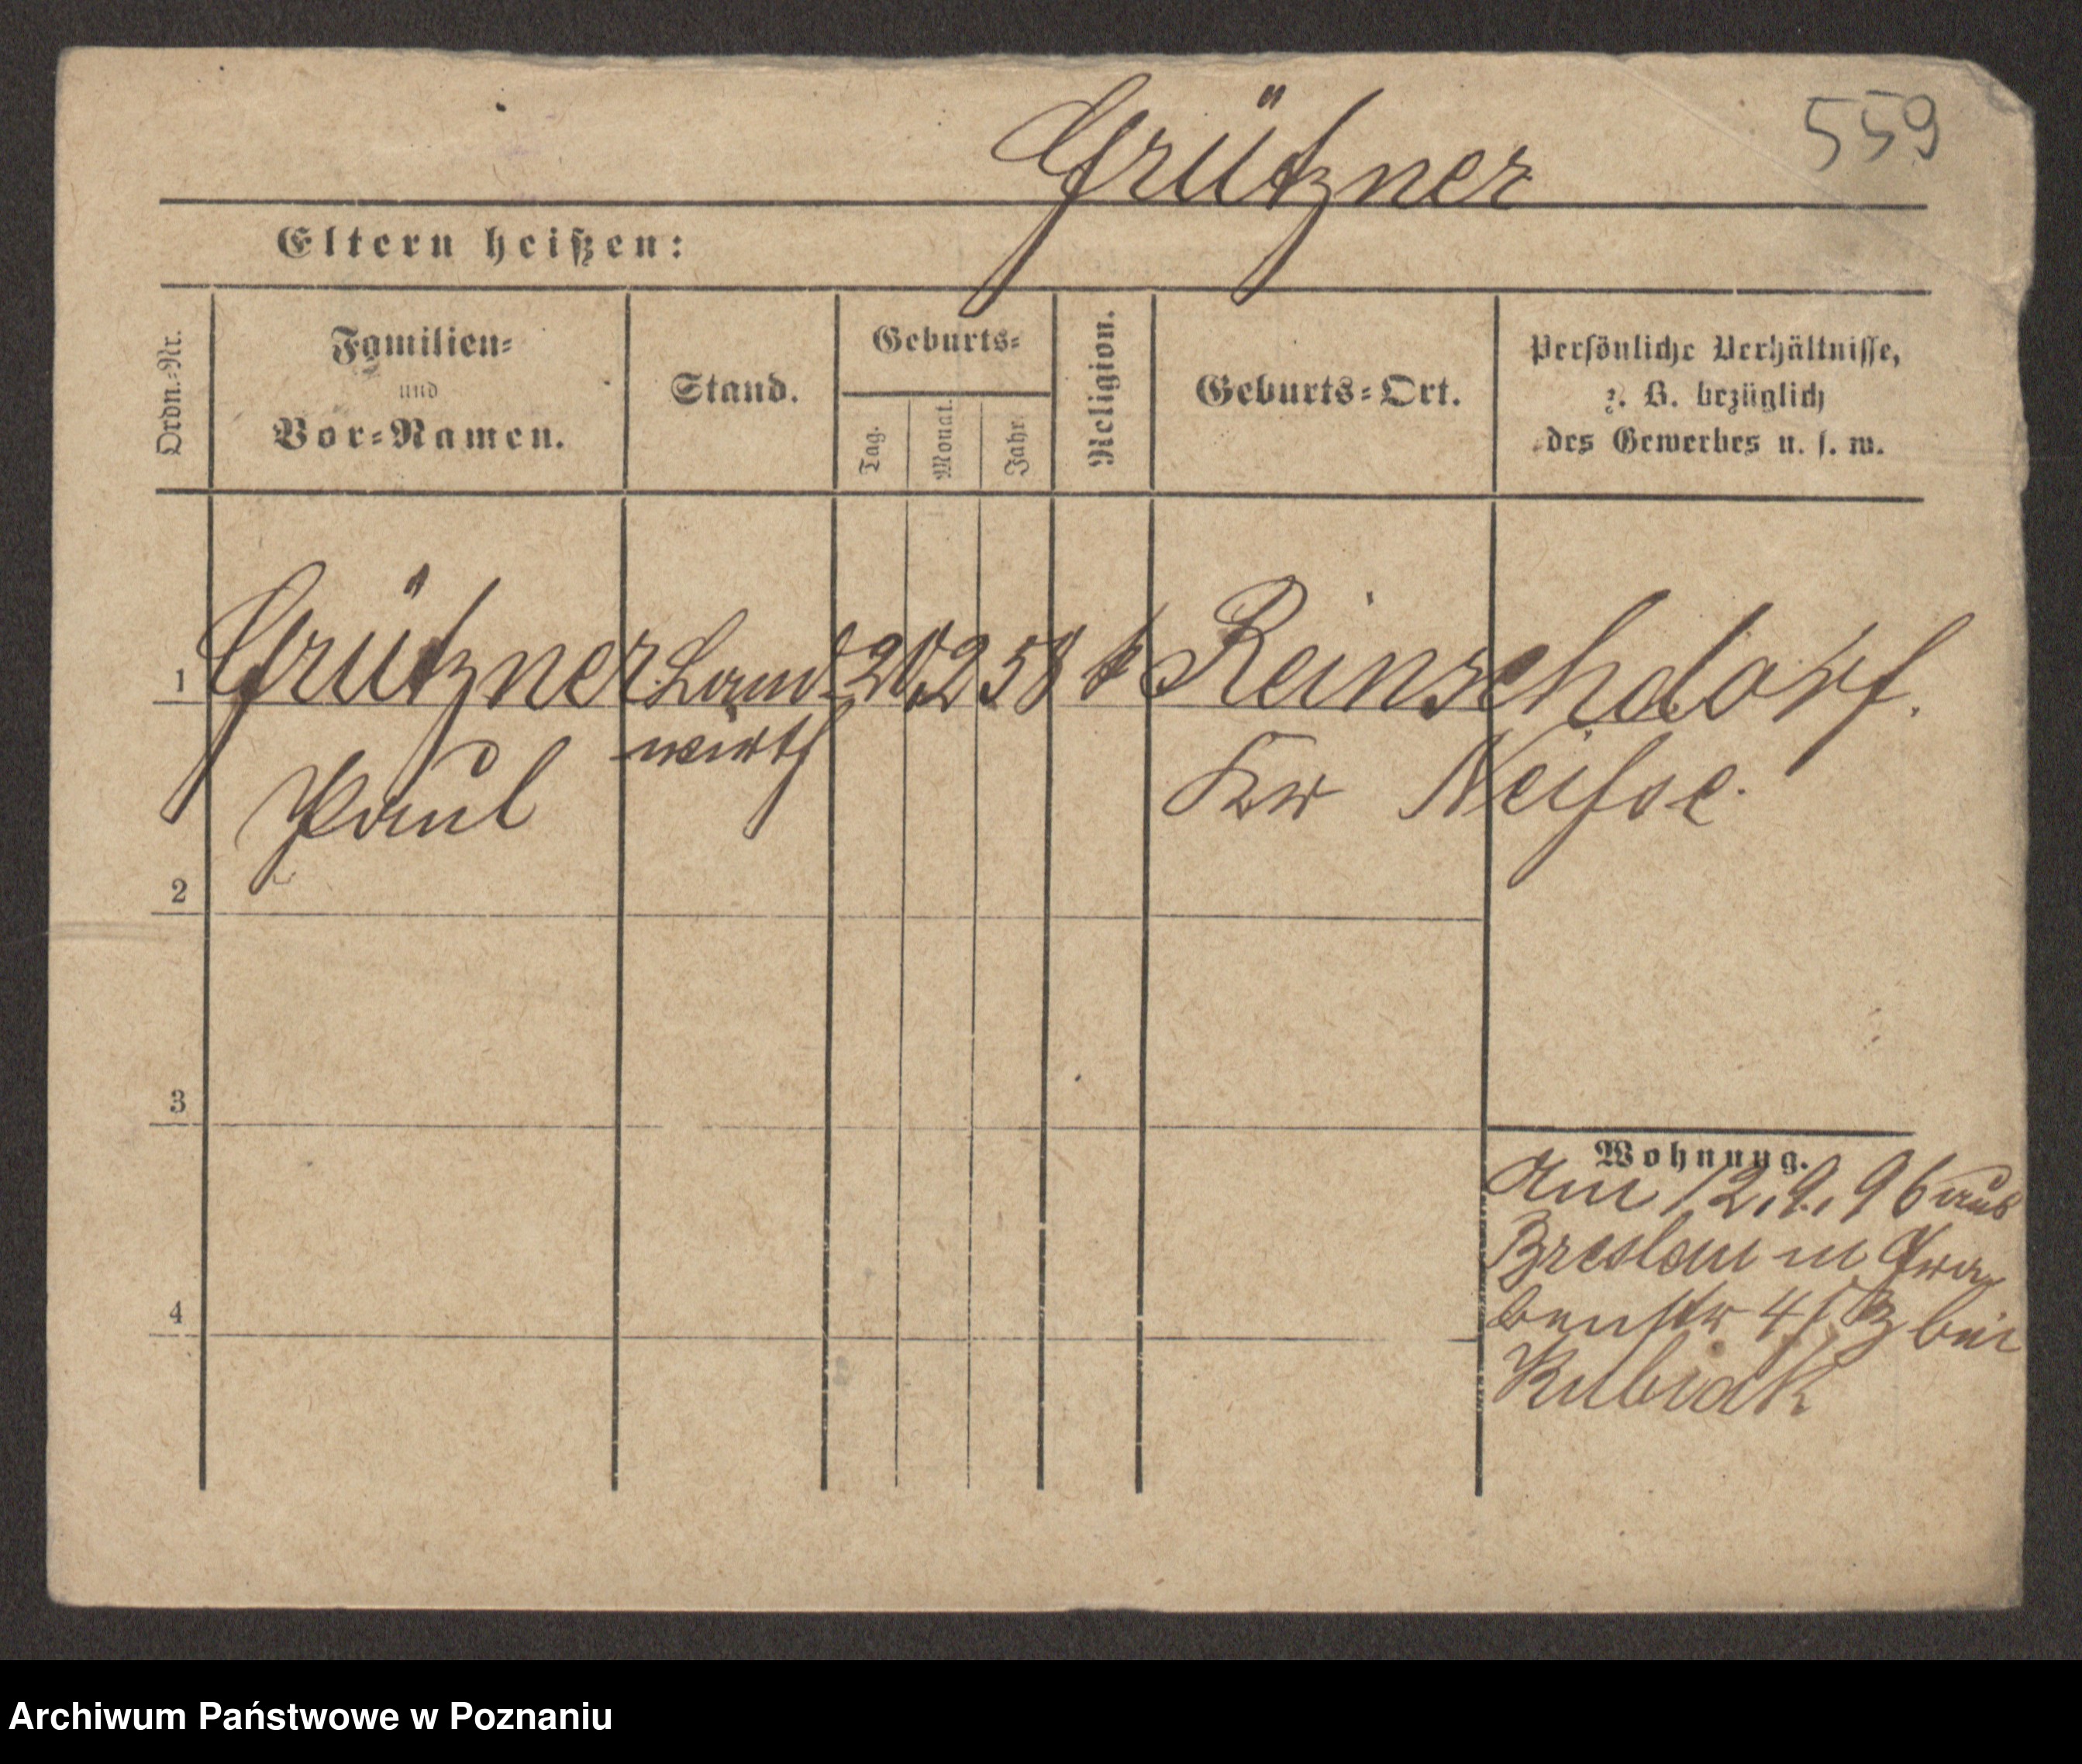 559
Grützner
Eltern heißen:
Ordn.-Nr.
Familien-
und
Vor-Namen.
Stand.
Geburts-
Tag.
Monat.
Jahr.
Religion.
Geburts-Ort.
Persönliche Verhältnisse,
z. B. bezüglich
des Gewerbes u. s. w.
1 Grützner Land- 20 2 58 k Reinschdorf.
Paul wirth Kr Neisse.
2
3
4
Wohnung.
Am 12.9.96 aus
Breslau in Gra-
benstr 4/ bei
Kubiak
Archiwum Państwowe w Poznaniu